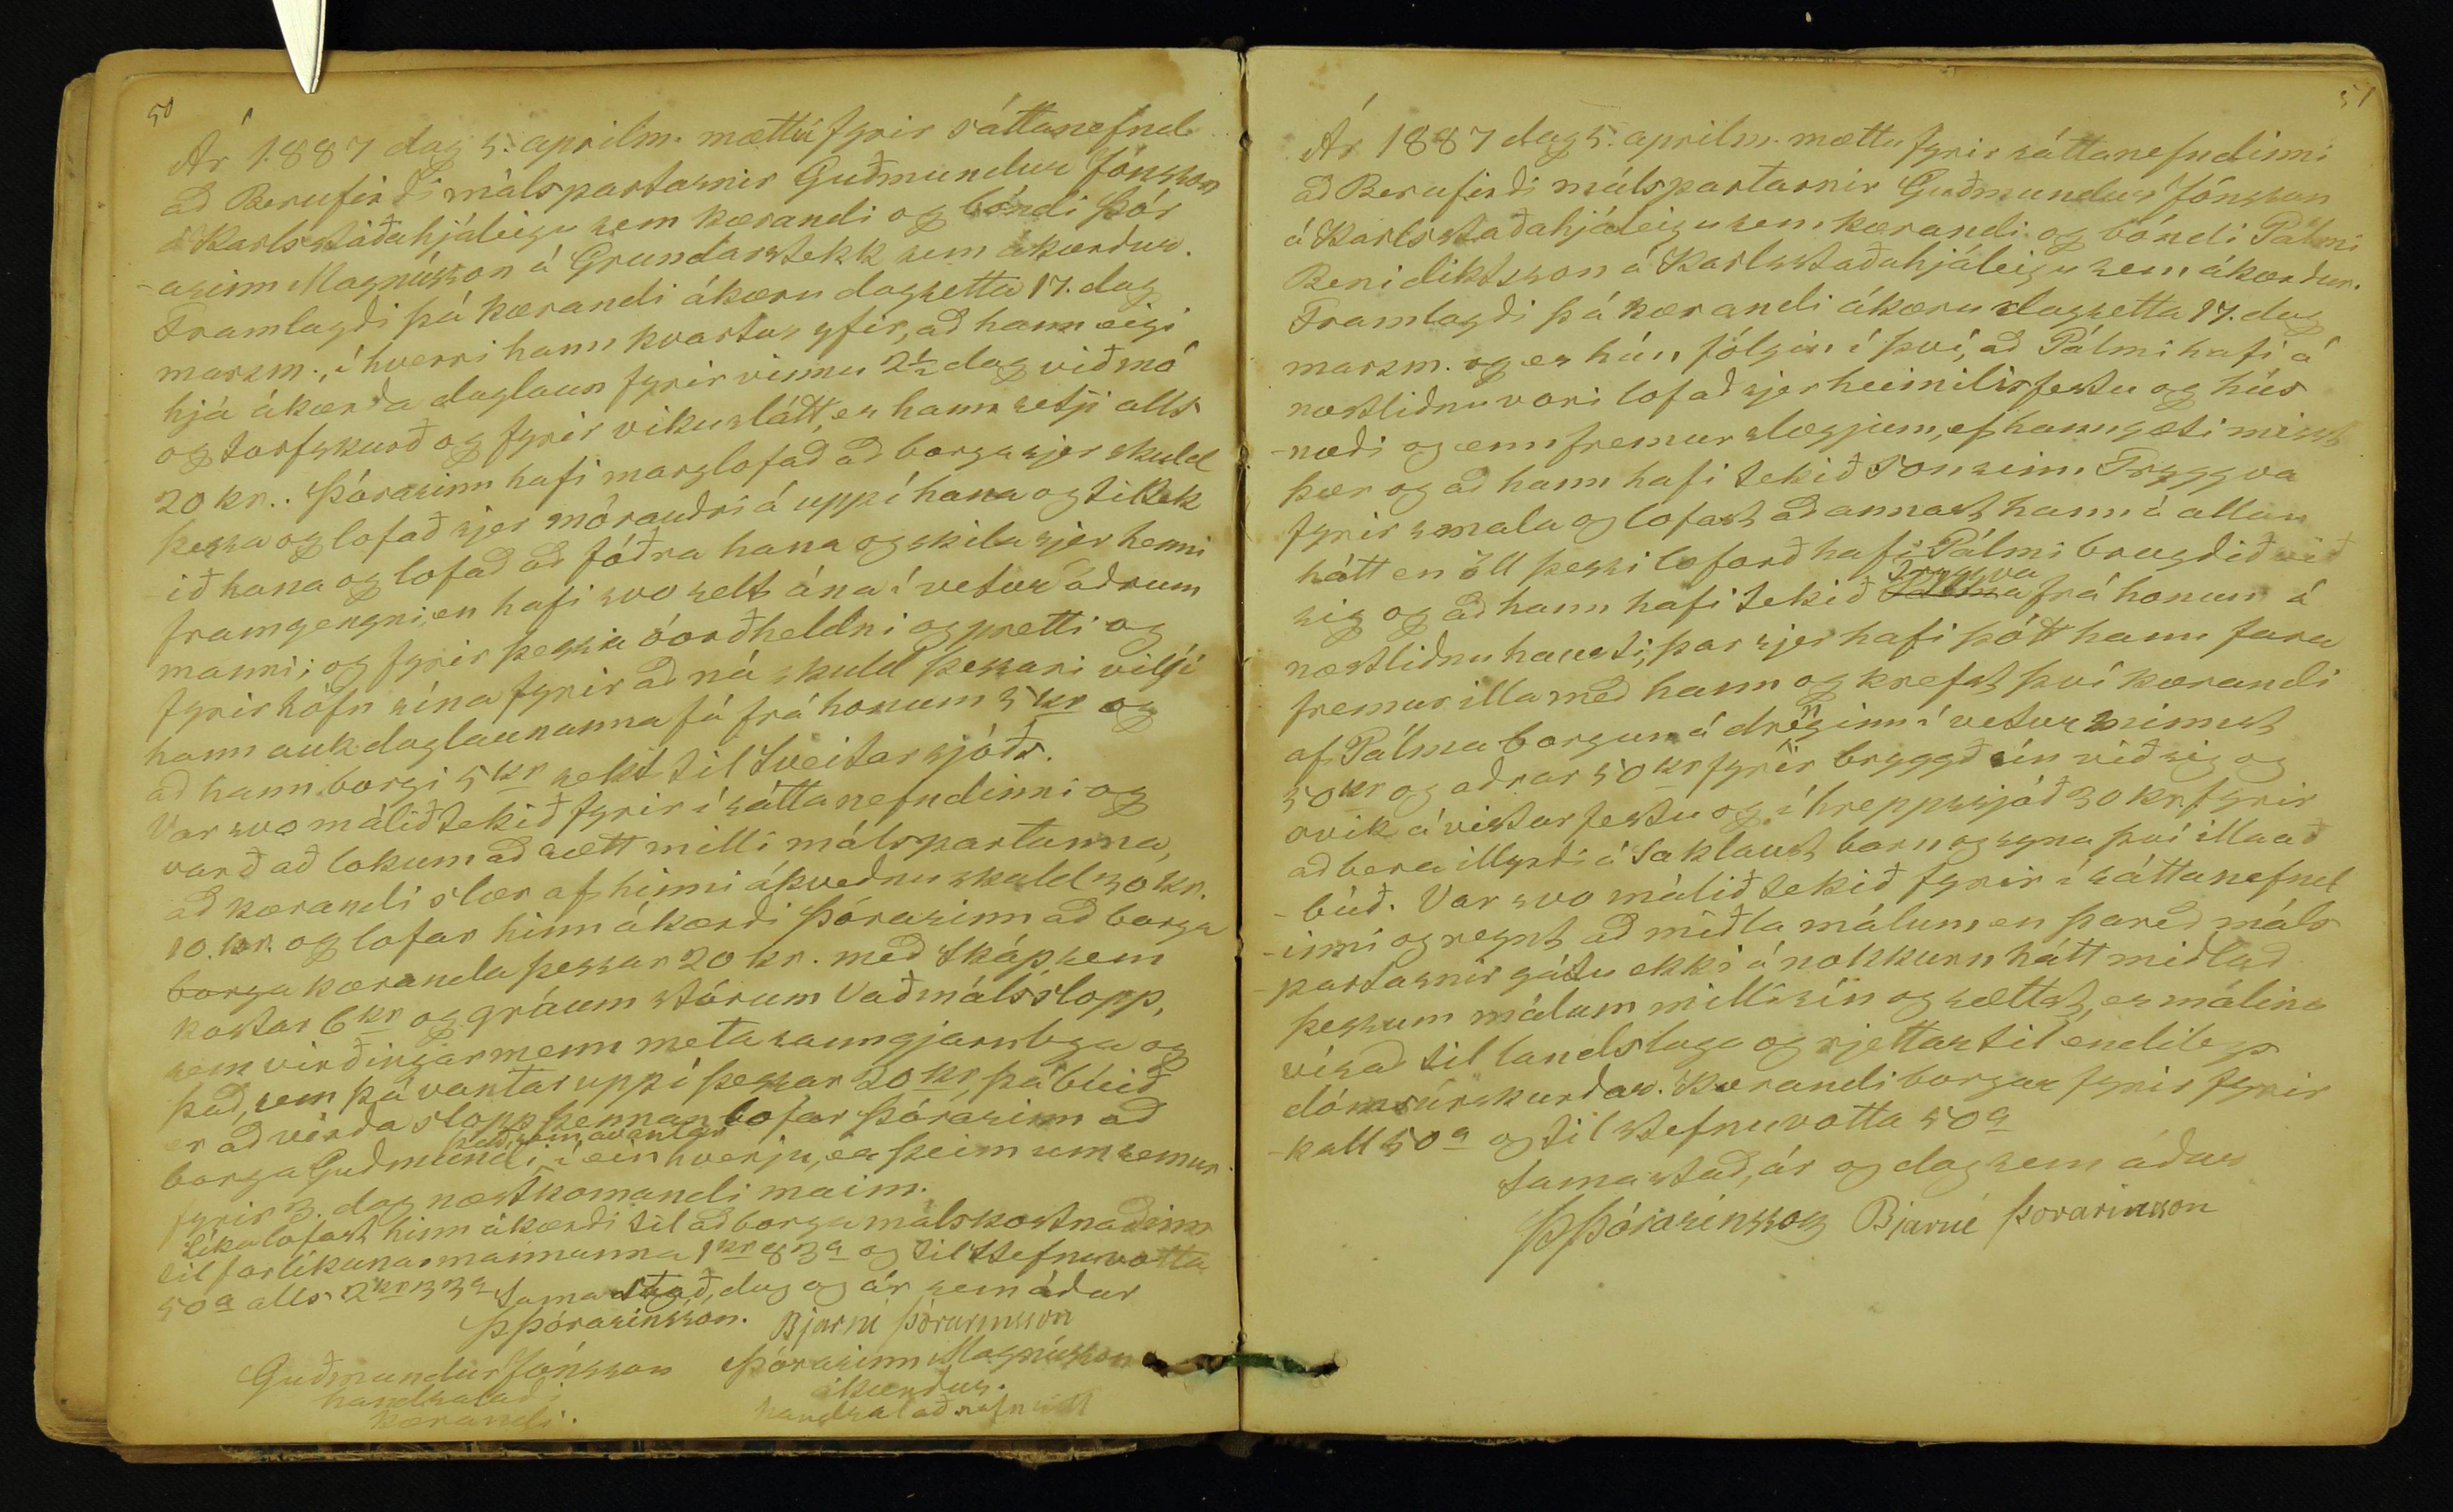 50
Ár 1887 dag 5. aprilm. mættu fyrir sáttanefnd
að Berufirði málspartarnir Guðmundur Jónsson
á Karlsstaðahjáleigu sem kærandi og bóndi Þór
-arinn Magnússon á Grundarstekk sem ákærður.
Framlagði þá kærandi ákæru dagsetta 17. dag
marsm., í hverri hann kvartar yfir, að hann eigi
hjá ákærða daglaun fyrir vinnu 2½ dag við mó
og torfskurð og fyrir vikuslátt, er hann setji alls
20 kr.. Þórarinn hafi marglofað að borga sjer skuld
þessa og lofað sjer mórauðri á uppí hana og tiltek
-ið hana og lofað að fóðra hana og skila sjer henni
framgenginni, en hafi svo selt ána í vetur öðrum
manni; og fyrir þessa óorðheldni og pretti og
fyrirhöfn sína fyrir að ná skuld þessari vilji
hann auk daglaunanna fá frá honum 5 kr og
að hann borgi 5 kr sekt til Sveitarsjóðs.
Var svo málið tekið fyrir í sáttanefndinni og
varð að lokum að sætt milli málspartanna,
að kærandi slær af hinni ákveðnu skuld 30 kr.
10. kr. og lofar hinn ákærði Þórarinn að borga
borga kæranda þessar 20 kr. með Skáp sem
kostar 6 kr og gráum stórum Vaðmálsslopp,
sem virðingarmenn meta sanngjarnlega og
það, sem þá vantar uppí þessar 20 kr, þá búið
er að virða slopp þennan lofar Þórarinn að
borga Guðmundi það, sem ávantar í einhverju, er þeim um semur
fyrir 3. dag næstkomandi maim.
Líka lofast hinn ákærði til að borga málskostnaðinn
til forlíkunarmannanna 1 kr 83 a og til Stefnuvotta
50 a alls 2 kr 33 a Sama stað, dag og ár sem áður
Þ Þórarinsson. Bjarni Þórarinsson
Guðmundur Jónsson Þórarinn Magnússon
handsalaði ákærður.
kærandi. handsalað nafn
51
Ár 1887 dag 5. aprilm. mættu fyrir sáttanefndinni
að Berufirði málspartarnir Guðmundur Jónsson
á Karlsstaðahjáleigu sem kærandi og bóndi Pálmi
Benidiktsson á Karlsstaðahjáleigu sem ákærður.
Framlagði þá kærandi ákæru dagsetta 17. dag
marsm. og er hún fólgin í því, að Pálmi hafi á
næstliðnu vori lofað sjer heimilisfestu og hús
-næði og ennfremur slægjum, ef hann gæti misst
þær og að hann hafi tekið Son sinn Tryggva
fyrir smala og lofast að annast hann á allan
hátt en öll þessi loforð hafi Pálmi brugðið við
sig og að hann hafi tekið Tryggva frá honum á
næstliðnu hausti, þar sjer hafi þótt hann fara
fremur illa með hann og krefst því kærandi
af Pálma borgun á drenginn í vetur minnst
50 kr og aðrar 50 kr fyrir bryggð sín við sig og
ovik á vistarfestu og í hreppssjóð 30 kr. fyrir
að bera illyrði á Saklaust barn og syna því illa að
-búð. Var svo málið tekið fyrir í sáttanefnd
-inni og reynt að miðla málum en þareð máls
-partarnir gátu ekki á nokkurn hátt miðlað
þessum málum milli sín og sættst, er málinu
vísað til landslaga og rjettar til endilegs
dómsúrskurðar. Kærandi borgar fyrir fyrir
-kall 50 a og til stefnuvotta 50 a
Sama stað, ár og dag sem áður
Þ Þórarinsson Bjarni Þorarinsson